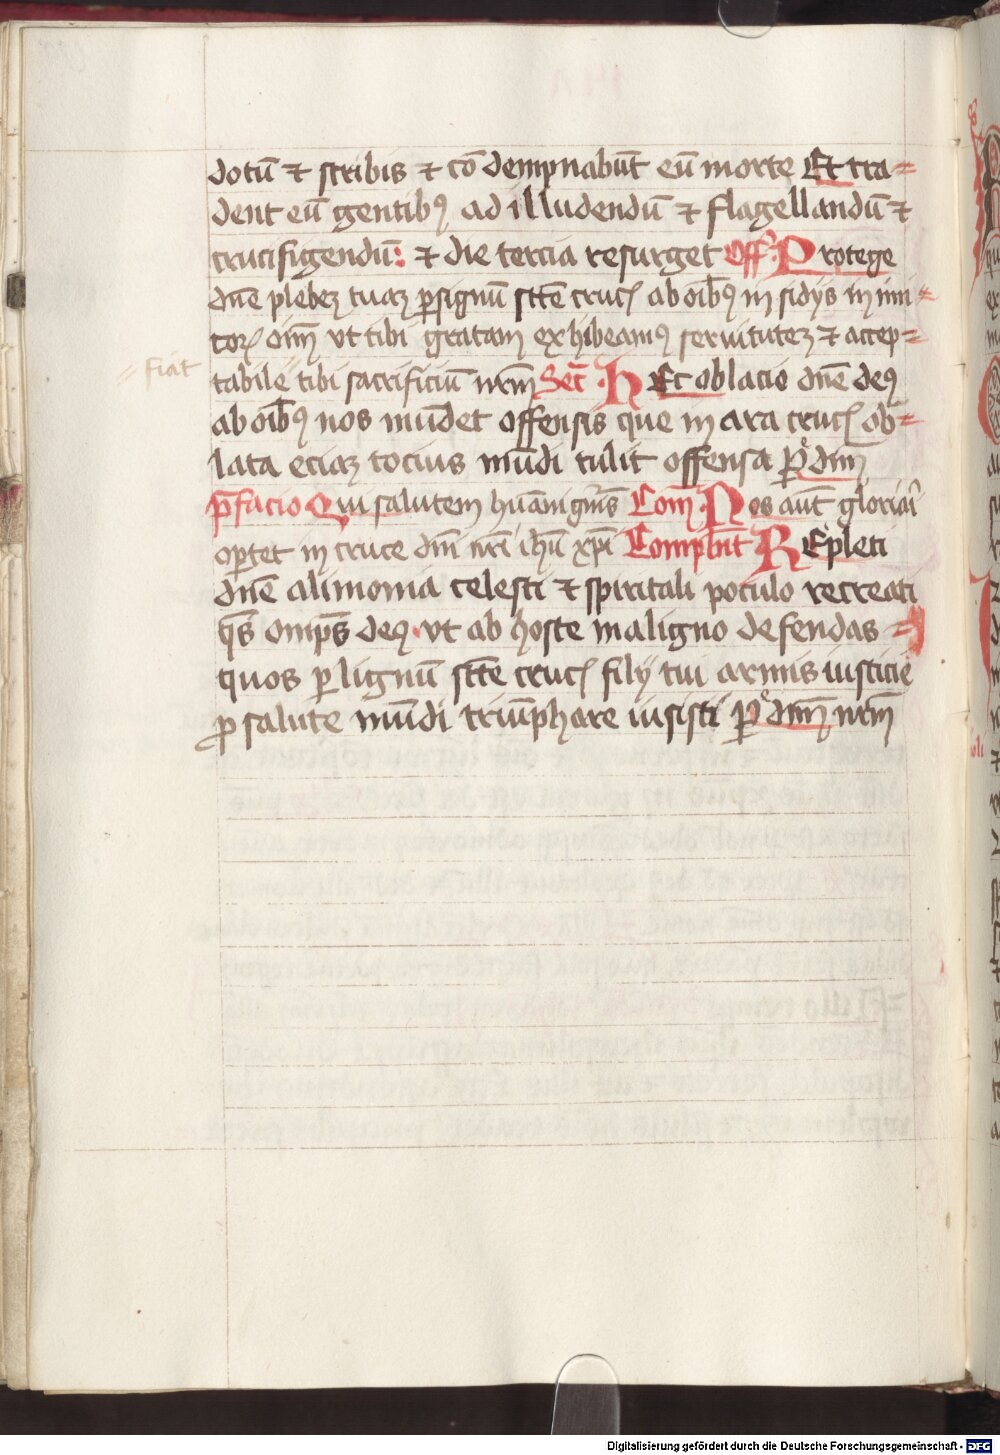 dotū ⁊ scribis ⁊ cō dempnabūt eū morte Et tra=
dent eū gentibꝰ ad illudendū ⁊ flagellandū ⁊
crucifigendū: ⁊ die tercia resurget Off. Protege
dn̄e plebeꝫ tuaꝫ ꝑsignū sct̄e crucꝭ ab oībꝰ in sidijs in imi=
corꝝ oīm vt tibi gratam exhibeamꝰ seruituteꝫ ⁊ accep=
fiat
tabile tibi sacrificiū nr̄m Sec̄. Hec oblacio dn̄e deꝰ
ab oībꝰ nos mūdet offensis que in ara crucꝭ ob=
lata eciaꝫ tocius mūdi tulit offensa ꝑ dn̄m
p̄facio Qui salutem hūani gn̄is Com̄. Nos aūt gloriari
oꝑtet in cruce dn̄i nr̄i ih̄u xp̄i Complēnt Repleti
dn̄e alimonia celesti ⁊ spiritali poculo recreati
qs̄ omp̄s deꝰ vt ab hoste maligno defendas =
quos ꝑ lignū sct̄e crucꝭ filij tui armis iusticie
ꝓ salute mūdi triūphare iussisti ꝑ dn̄m nr̄m
Digitalisierung gefördert durch die Deutsche Forschungsgemeinschaft - DFG